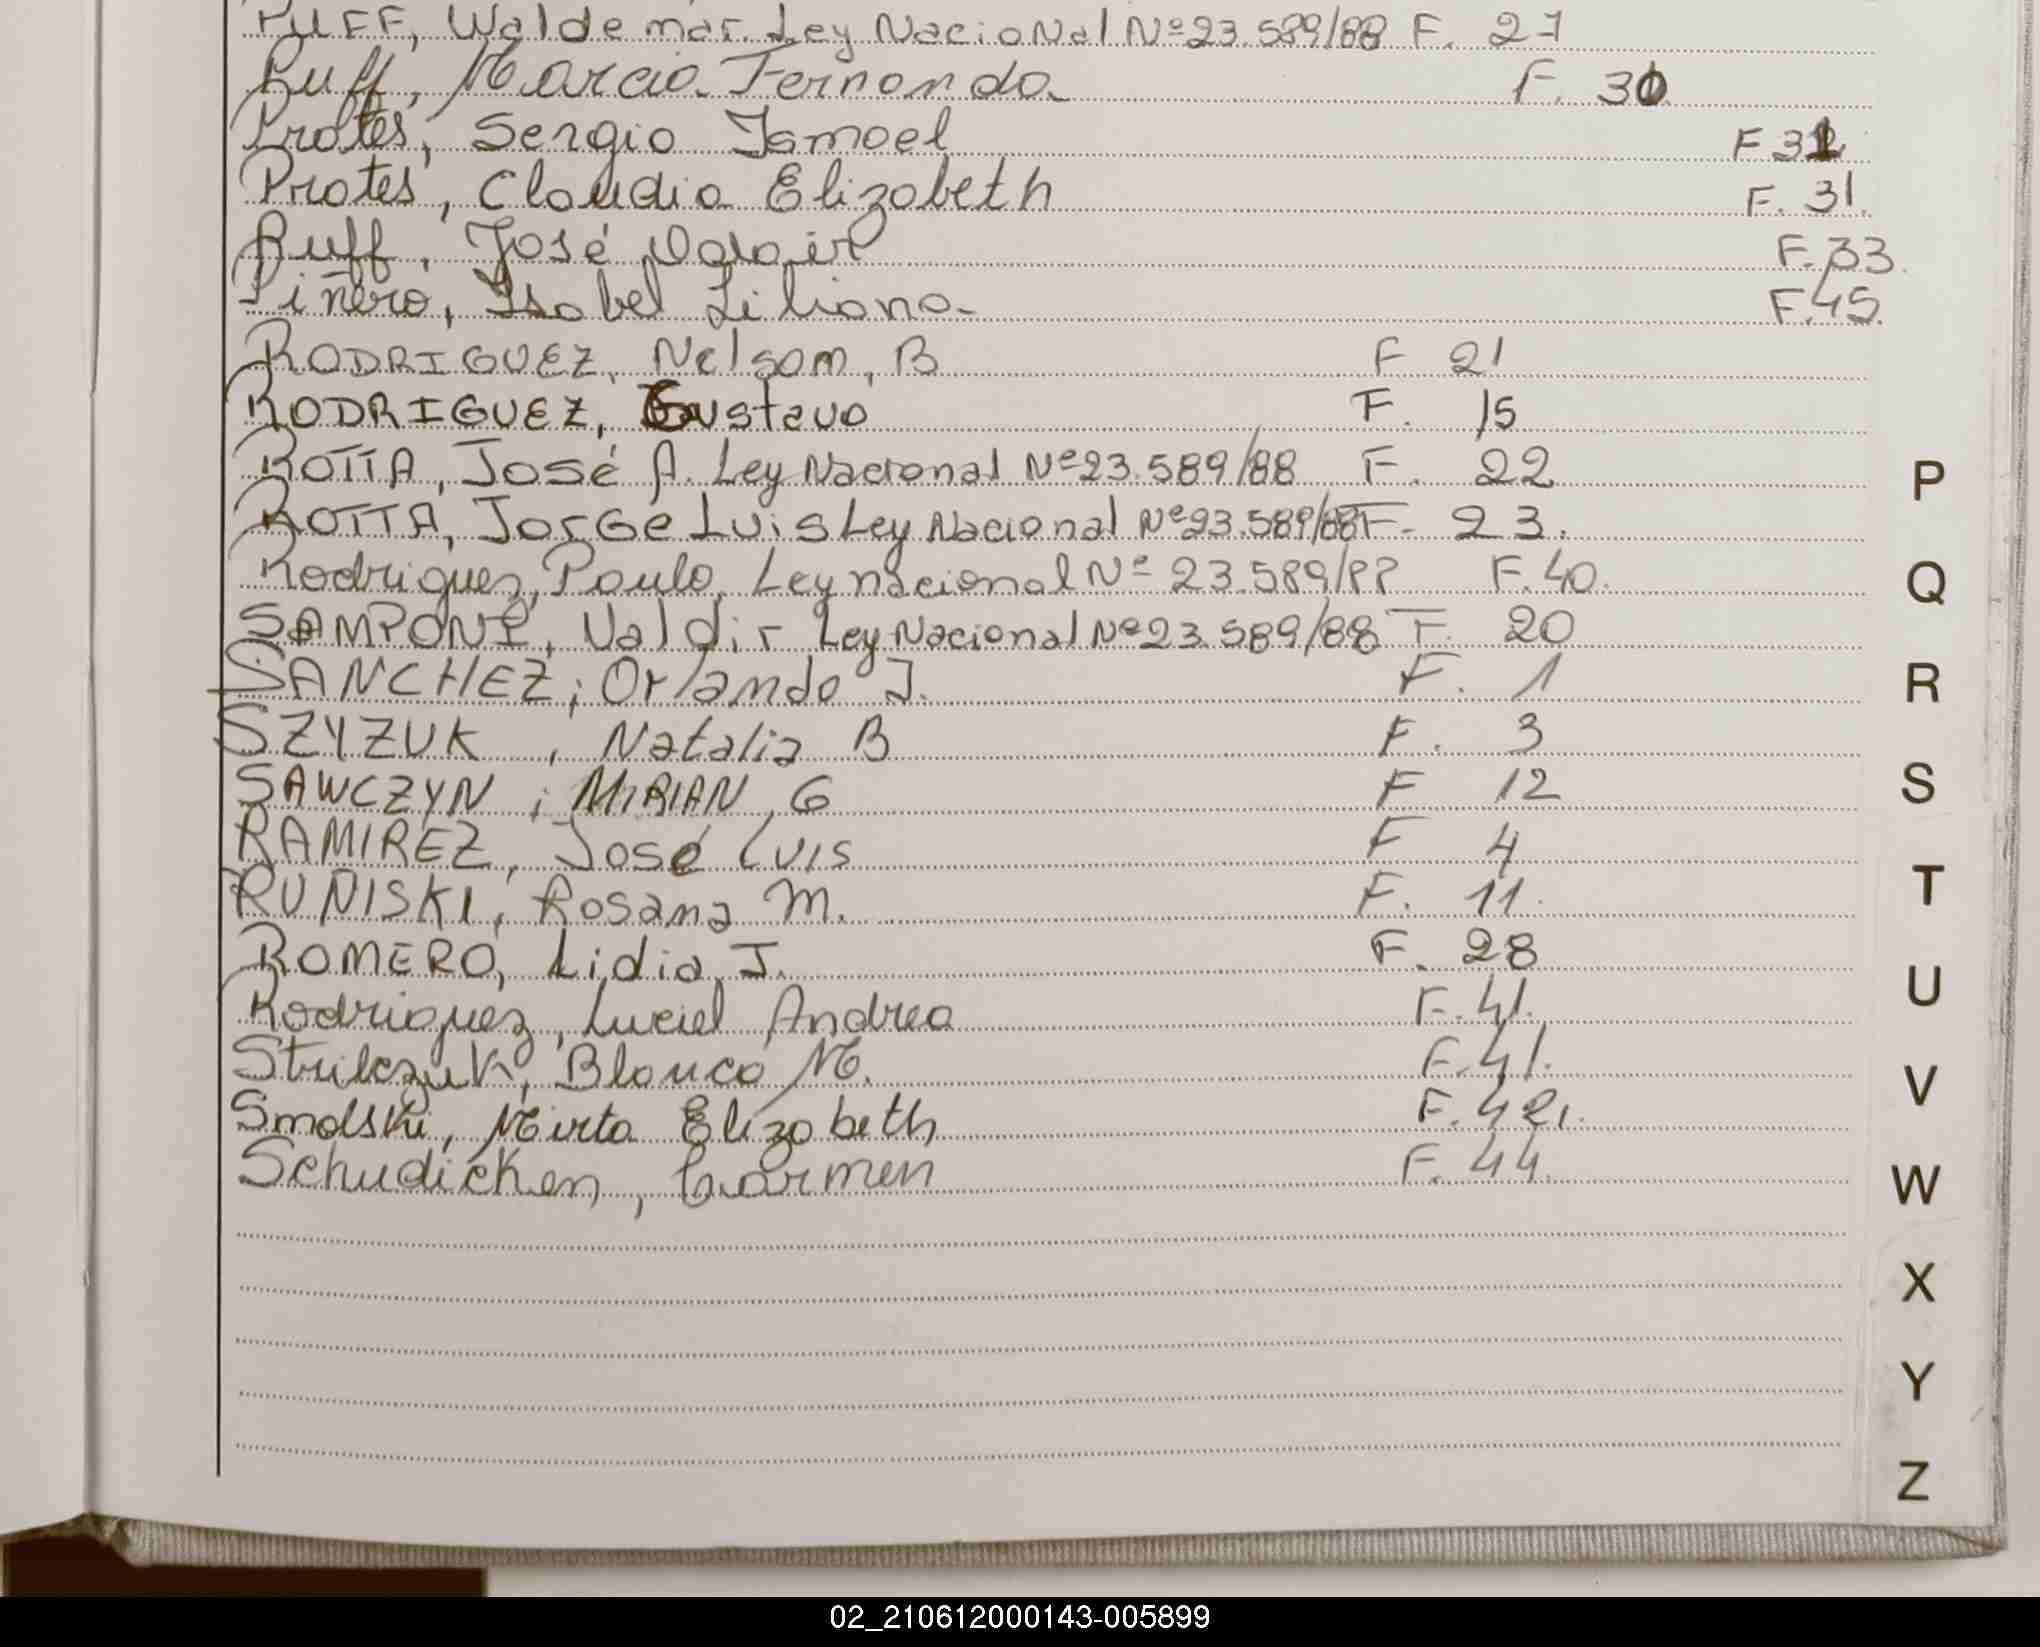 PUFF, Waldemar. Ley Nacional Nº 23.589/88 F. 27
Puff, Marcia Fernanda F. 30
Prates, Sergio Ismael F 31
Prates, Claudia Elizabeth F. 31.
Puff, José Odair F. 33.
Piñero, Isabel Liliana F. 45.
RODRIGUEZ, Nelsom, B F 21
RODRIGUEZ, Gustavo F. 15
ROTTA, José A. Ley Nacional Nº 23.589/88 F. 22
ROTTA, JorGe Luis Ley Nacional Nº 23.589/88 F. 23.
Rodriguez, Paulo, Ley nacional Nº 23.589/88 F. 40.
SAMPONI, Valdir Ley Nacional Nº 23.589/88 F. 20
SANCHEZ; Orlando J. F. 1
SZYZUK, Natalia B F. 3
SAWCZYN; MIRIAN, G F 12
RAMIREZ, José Luis F 4
RUÑISKI, Rosana M. F. 11.
ROMERO, Lidia J. F. 28
Rodriguez, Luciel Andrea F. 41.
Strilczuk, Blanca M. F. 41.
Smolski, Mirta Elizabeth F. 42.
Schudicken, Carmen F. 44.
P
Q
R
S
T
U
V
W
X
Y
Z
02_210612000143-005899